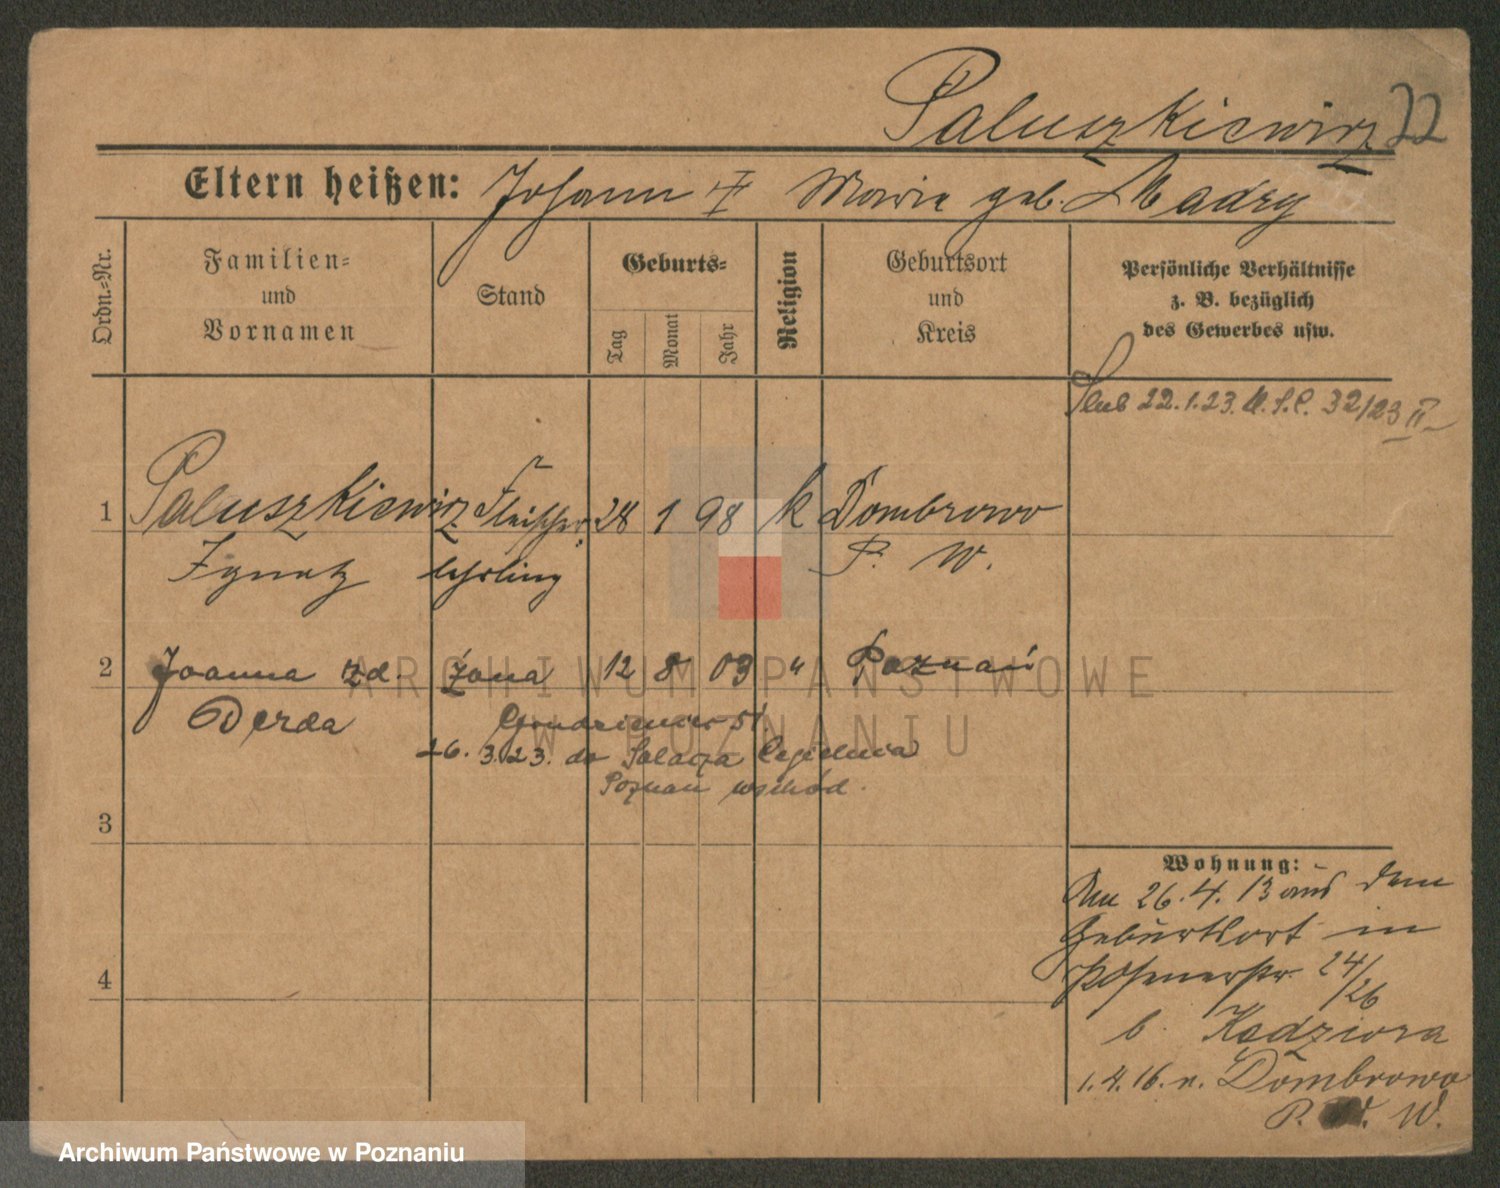 Paluszkiewicz 22
Eltern heißen: Johann ‡ Marie geb. Madry
Ordn.-Nr.
Familien-
und
Vornamen
Stand
Geburts-
Tag
Monat
Jahr
Religion
Geburtsort
und
Kreis
Persönliche Verhältnisse
z. B. bezüglich
des Gewerbes usw.
Slub 22.1.23. U.S.C. 32/23 II
1 Paluszkiewicz Fleischer 28 1 98 k Dombrowo
Ignatz lehrling P. W.
2 Joanna zd. żona 12 8 03 " Poznań
Derda
26. 3. 23. do Solacza Cegielnia
Poznań wschód.
3
4
Wohnung:
Am 26.4.13 aus dem
Geburtsort in
Posenerstr. 24/26
b. Kedziora
1.4.16. n. Dombrowo
P. W.
ARCHIWUM PAŃSTWOWE
W POZNANIU
Archiwum Państwowe w Poznaniu